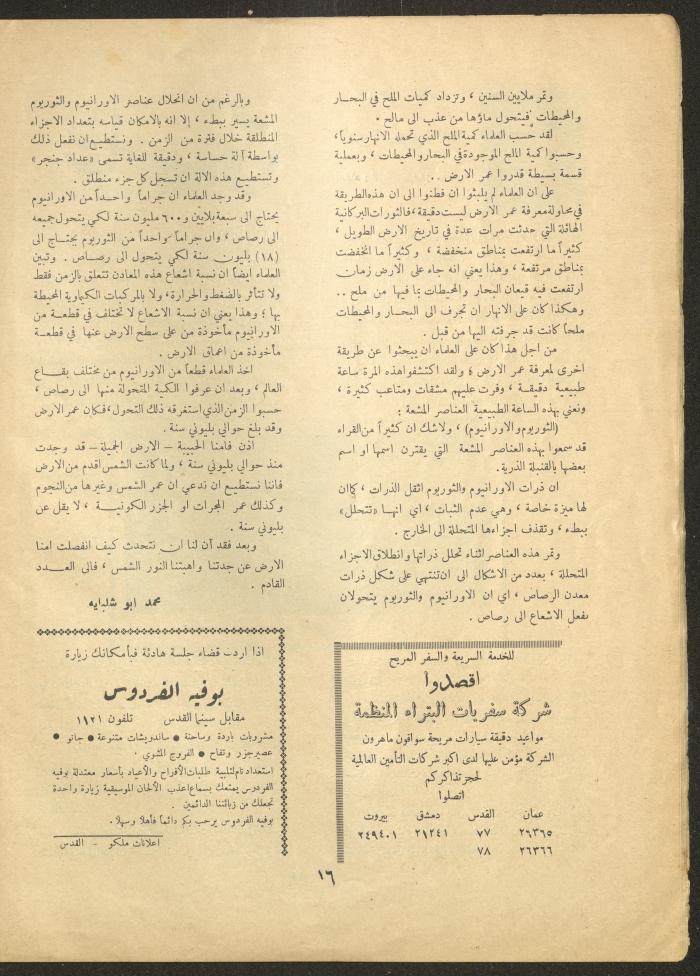 وتمر ملايين السنين ، وتزداد كميات الملح في البحـار
والمحيطات فيتحول ماؤها من عذب الى مالح .
لقد حسب العلماء كمية الملح الذي تحمله الانهار سنوياً ،
وحسبوا كمية الملح الموجودة في البحار والمحيطات ، وبعملية
قسمة بسيطة قدروا عمر الارض . .
على ان العلماء لم يلبثوا ان فطنوا الى ان هذه الطريقة
في محاولة معرفة عمر الارض ليست دقيقة ، فالثورات البركانية
الهائلة التي حدثت مرات عدة في تاريخ الارض الطويل ،
كثيراً ما ارتفعت بمناطق منخفضة ، وكثيراً ما انخفضت
بمناطق مرتفعة ، وهذا يعني انه جاء على الارض زمان
ارتفعت فيه قيعان البحار والمحيطات بما فيها من ملح . .
وهكذا كان على الانهار ان تجرف الى البحـار والمحيطات
ملحاً كانت قد جرفته اليها من قبل .
من اجل هذا كان على العلماء ان يبحثوا عن طريقة
اخرى لمعرفة عمر الارض ؛ ولقد اكتشفوا هذه المرة ساعة
طبيعية دقيقـة ، وفرت عليهم مشقات ومتاعب كثيرة ،
ونعني بهذه الساعة الطبيعية العناصر المشعة :
(الثوريوم والاورانيوم) ، ولا شك ان كثيراً من القراء
قد سمعوا بهذه العناصر المشعة التي يقترن اسمها او اسم
بعضها بالقنبلة الذرية .
ان ذرات الاورانيوم والثوريوم اثقل الذرات ، كما ان
لها ميزة خاصة ، وهي عدم الثبات ، اي انهـا «تتحلل»
ببطء ، وتقذف اجزاءها المتحللة الى الخارج .
وتمر هذه العناصر اثناء تحلل ذراتها وانطلاق الاجزاء
المتحللة ، بعدد من الاشكال الى ان تنتهي على شكل ذرات
معدن الرصاص ، اي ان الاورانيوم والثوريوم يتحولان
بفعل الاشعاع الى رصاص .
وبالرغم من ان انحلال عناصر الاورانيوم والثوريوم
المشعة يسير ببطء ، إلا انه بالامكان قياسه بتعداد الاجزاء
المنطلقة خلال فترة من الزمن . ونستطيع ان نفعل ذلك
بواسطة آلة حساسة ، ودقيقة للغاية تسمى «عداد جنجر»
وتستطيع هذه الالة ان تسجل كل جزء منطلق .
وقد وجد العلماء ان جراماً واحـداً من الاورانيوم
يحتاج الى سبعة بلايين و ٦٠٠ مليون سنة لكي يتحول جميعه
الى رصاص ، وان جراماً واحداً من الثوريوم يحتـاج الى
(١٨) بليون سنة لكي يتحول الى رصـاص . وتبين
العلماء ايضاً ان نسبة اشعاع هذه المعادن تتعلق بالزمن فقط
ولا تتأثر بالضغط والحرارة ، ولا بالمركبات الكيماوية المحيطة
بها ؛ وهذا يعني ان نسبة الاشعاع لا تختلف في قطعـة من
الاورانيوم مأخوذة من على سطح الارض عنها في قطعـة
مأخوذة من اعماق الارض .
اخذ العلماء قطعاً من الاورانيوم من مختلف بقــاع
العالم ، وبعد ان عرفوا الكمية المتحولة منها الى رصاص ،
حسبوا الزمن الذي استغرقه ذلك التحول ، فكان عمر الارض
وقد بلغ حوالي بليوني سنة .
اذن فامنا الحبيبة – الارض الجميلة – قد وجدت
منذ حوالي بليوني سنة ، ولما كانت الشمس اقدم من الارض
فاننا نستطيع ان ندعي ان عمر الشمس وغيرها من النجوم
وكذلك عمر المجرات او الجزر الكونيــة ، لا يقل عن
بليوني سنة .
وبعد فقد آن لنا ان نتحدث كيف انفصلت امنا
الارض عن جدتنا واهبتنا النور الشمس ، فالى العــدد
القادم .
محمد ابو شلبايه
للخدمة السريعة والسفر المريح
اقصدوا
شركة سفريات البتراء المنظمة
مواعيد دقيقة سيارات مريحة سواقون ماهرون
الشركة مؤمن عليها لدى اكبر شركات التأمين العالمية
لحجز تذاكركم
اتصلوا
عمان القدس دمشق بيروت
٢٦٣٦٥ ٧٧ ٢١٢٤١ ٢٤٩٤٠١
٢٦٣٦٦ ٧٨
اذا اردت قضاء جلسة هادئة فبأمكانك زيارة
بوفيه الفردوس
مقابل سينما القدس تلفون ١٩٢١
مشروبات باردة وساخنة ● ساندويشات متنوعة ● جاتو ●
عصير جزر وتفاح ● الفروج المشوي .
استعداد تام لتلبية طلبات الأفراح والأعياد بأسعار معتدلة بوفيه
الفردوس يمتعك بسماع اعذب الألحان الموسيقية زيارة واحدة
تجعلك من زبائننا الدائمين .
بوفيه الفردوس يرحب بكم دائماً فأهلا وسهلا .
اعلانات ملكو - القدس
١٦